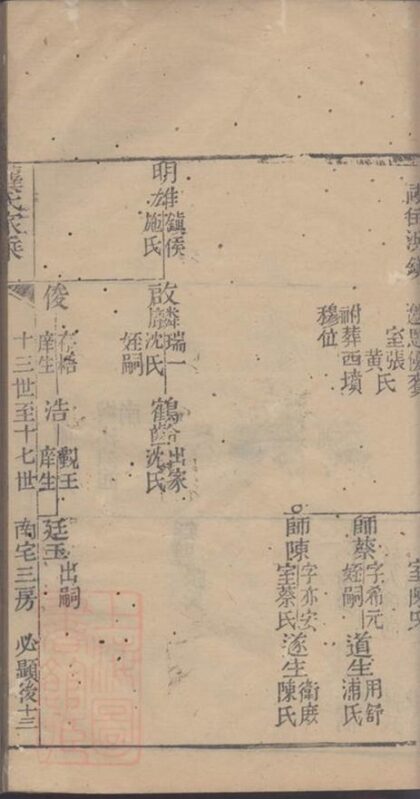 室張氏
黃氏
祔葬西墳
穆位
師蔡
字希元
姪嗣
道生
用舒
浦氏
師陳
字亦安
室蔡氏
遂生
衛庠
陳氏
明
雄鎮侯
施氏
啟
麟瑞一
沈氏
姪嗣
鶴
出家
藍沈氏
俊
庠生
浩
觀王
庠生
廷玉
出嗣
龔氏家乘
十三世至十七世
南宅三房
必顯後十三